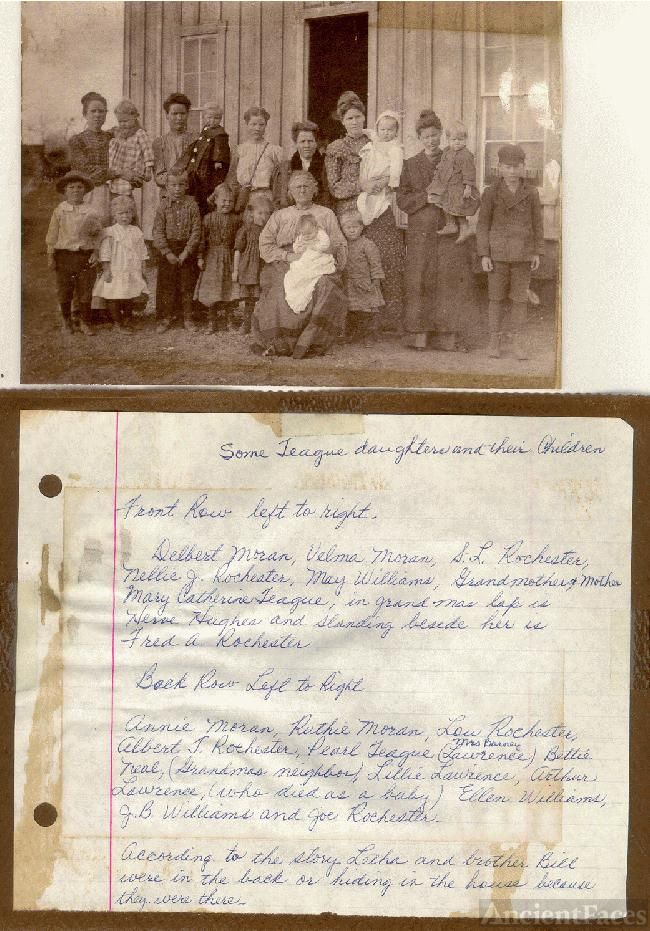 Some Teague daughters and their Children
Front Row left to right.
Delbert Moran, Velma Moran, S.L. Rochester,
Nellie J. Rochester, May Williams, Grandmother & Mother
Mary Catherine Teague, in grandmas lap is
Herve Hughes and standing beside her is
Fred A. Rochester
Back Row Left to Right
Annie Moran, Ruthie Moran, Lou Rochester,
Albert T. Rochester, Pearl Teague (Mrs Barney Lawrence) Bettie
Neal, (Grandmas neighbor) Lillie Lawrence, Arthur
Lawrence, (who died as a baby) Ellen Williams,
J.B. Williams and Joe Rochester.
According to the story Letha and brother Bill
were in the back or hiding in the house because
they were there.
AncientFaces